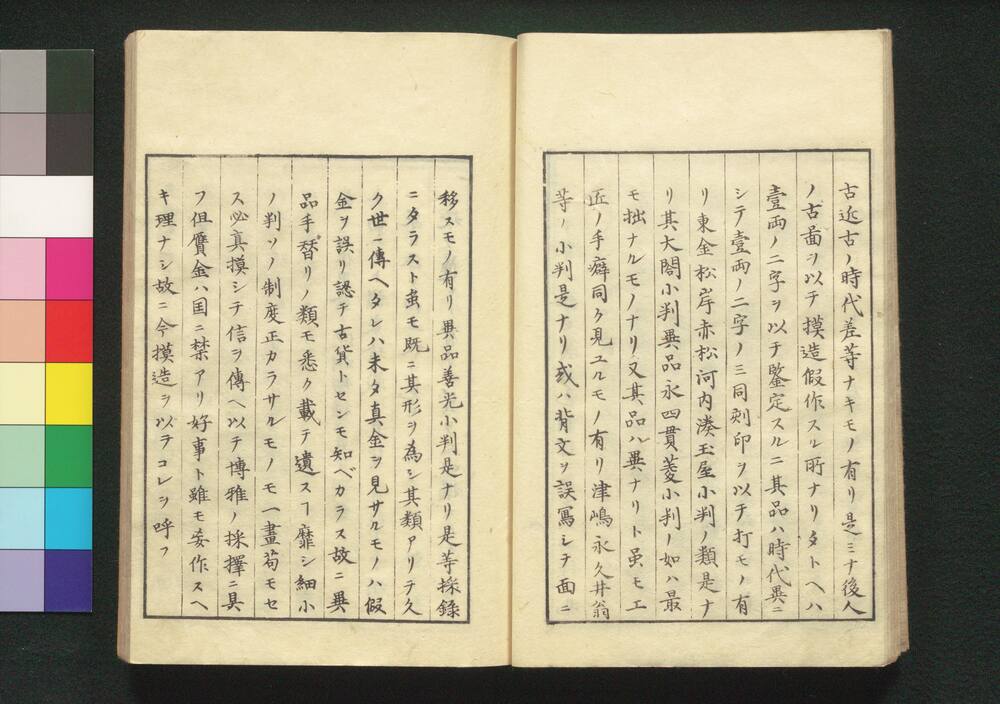 古近古ノ時代差等ナキモノ有リ是ミナ後人
ノ古畵ヲ以テ摸造假作スル所ナリタトヘハ
壹両ノ二字ヲ以テ鑒定スルニ其品ハ時代異ニ
シテ壹両ノ二字ノミ同刻印ヲ以テ打モノ有
リ東金松岸赤松河内湊玉屋小判ノ類是ナ
リ其大閤小判異品永四貫菱小判ノ如ハ最
モ拙ナルモノナリ又其品ハ異ナリト虽モ工
匠ノ手癖同ク見ユルモノ有リ津嶋永久井翁
等ノ小判是ナリ或ハ背文ヲ誤寫シテ面ニ
移スモノ有リ異品善光小判是ナリ是等採録
ニタラスト虽モ既ニ其形ヲ為シ其類アリテ久
ク世ニ傳ヘタレハ未タ真金ヲ見サルモノハ假
金ヲ誤リ認テ古貨トセンモ知ベカラス故ニ異
品手替リノ類モ悉ク載テ遺スヿ靡シ細小
ノ判ソノ制度正カラサルモノモ一畫苟モセ
ス必真摸シテ信ヲ傳ヘ以テ博雅ノ採擇ニ具
フ但贋金ハ国ニ禁アリ好事ト雖モ妄作スヘ
キ理ナシ故ニ今摸造ヲ以テコレヲ呼フ